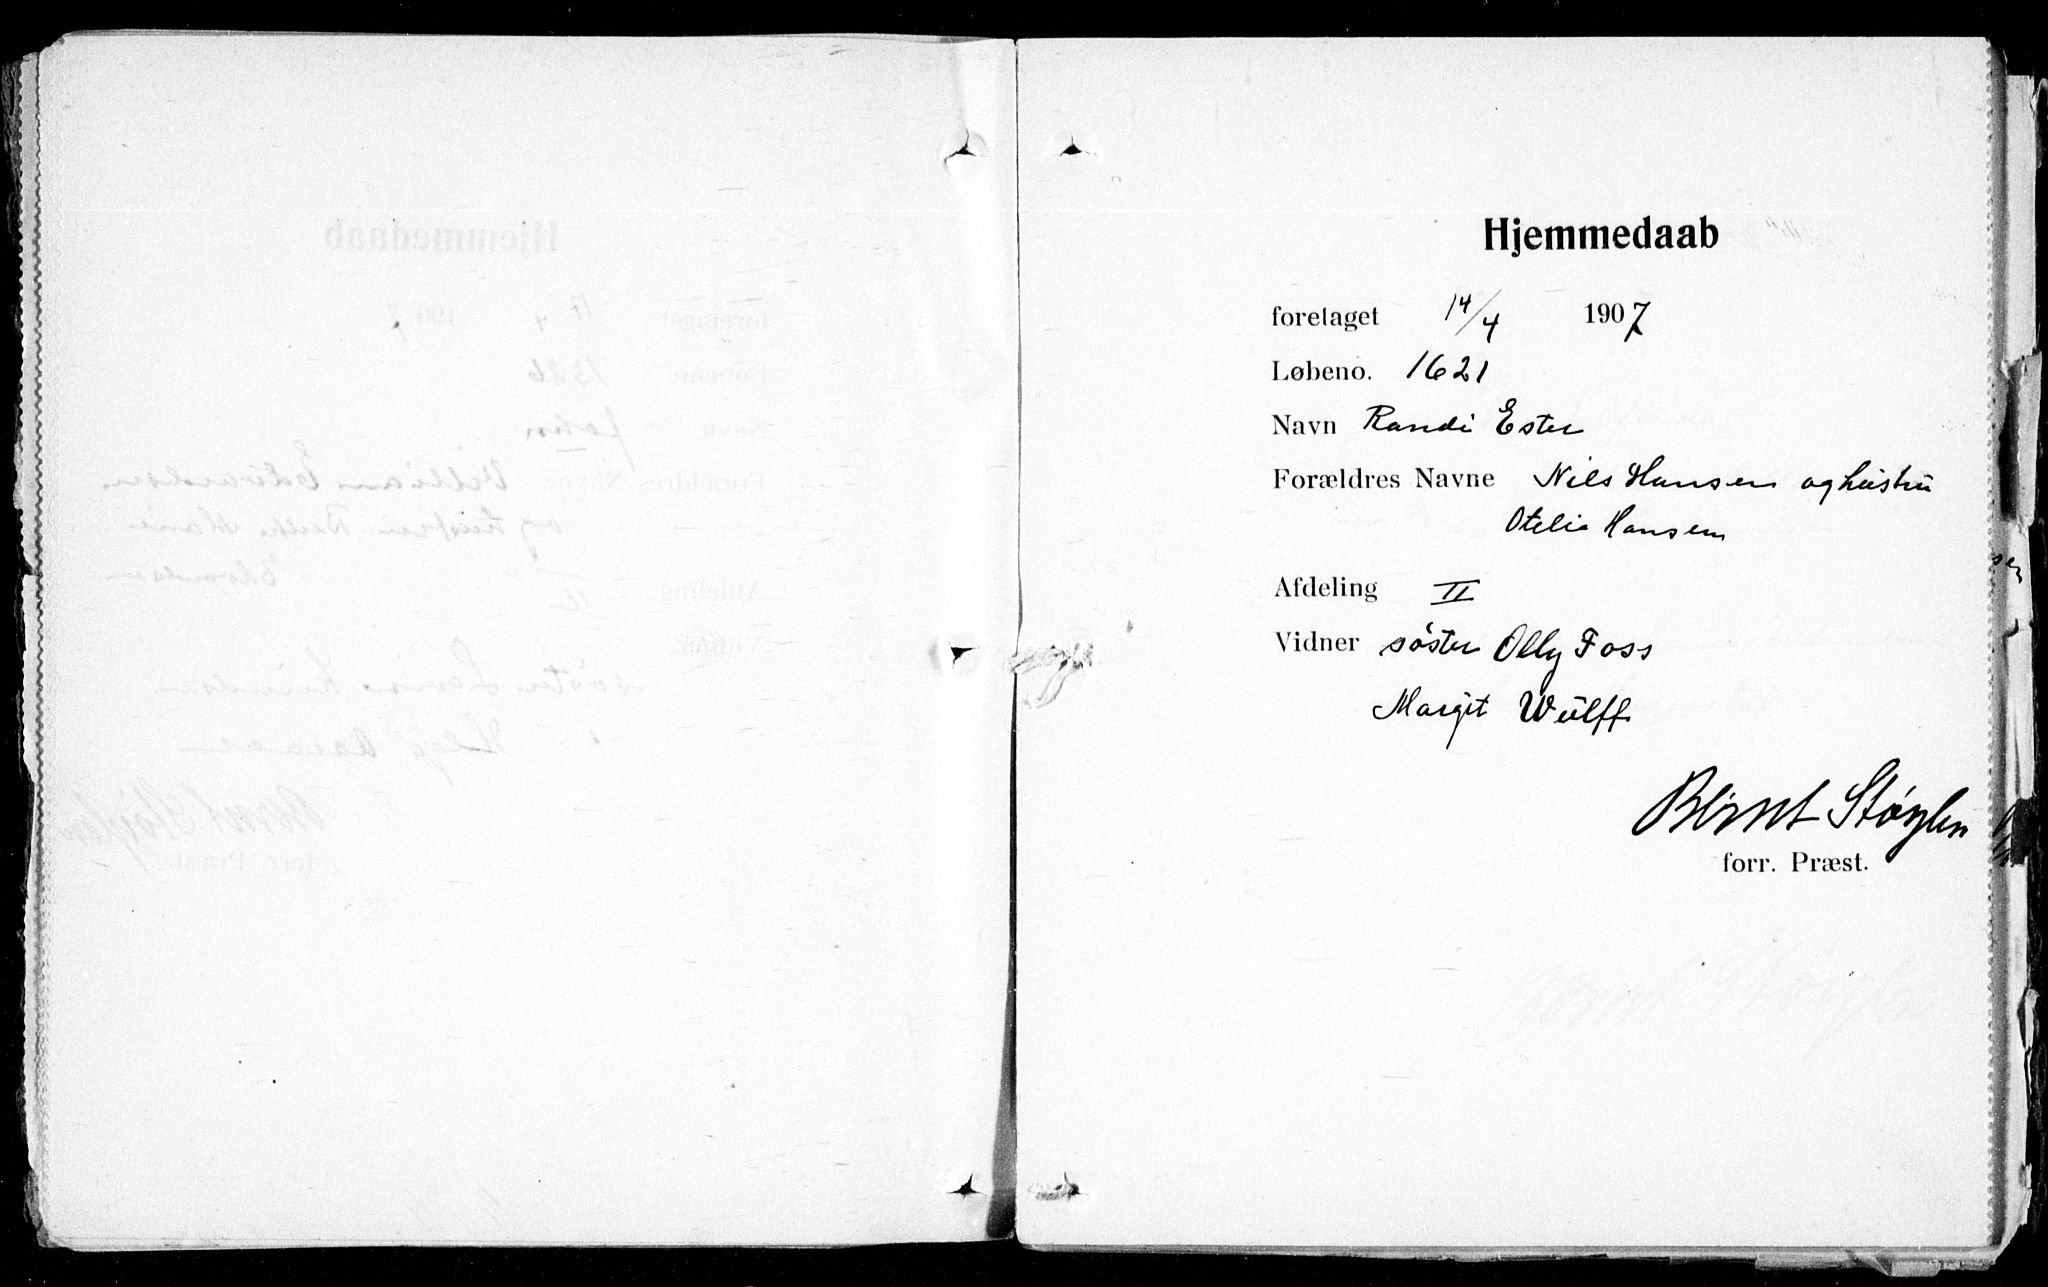 Hjemmedaab
foretaget 14/4 1907
Løbeno. 1621
Navn Randi Ester
Forældres Navne Nils Hansen og hustru
Otelie Hansen
Afdeling II
Vidner søster Olly Foss
Margit Wülff
Bernt Støylen
forr. Præst.